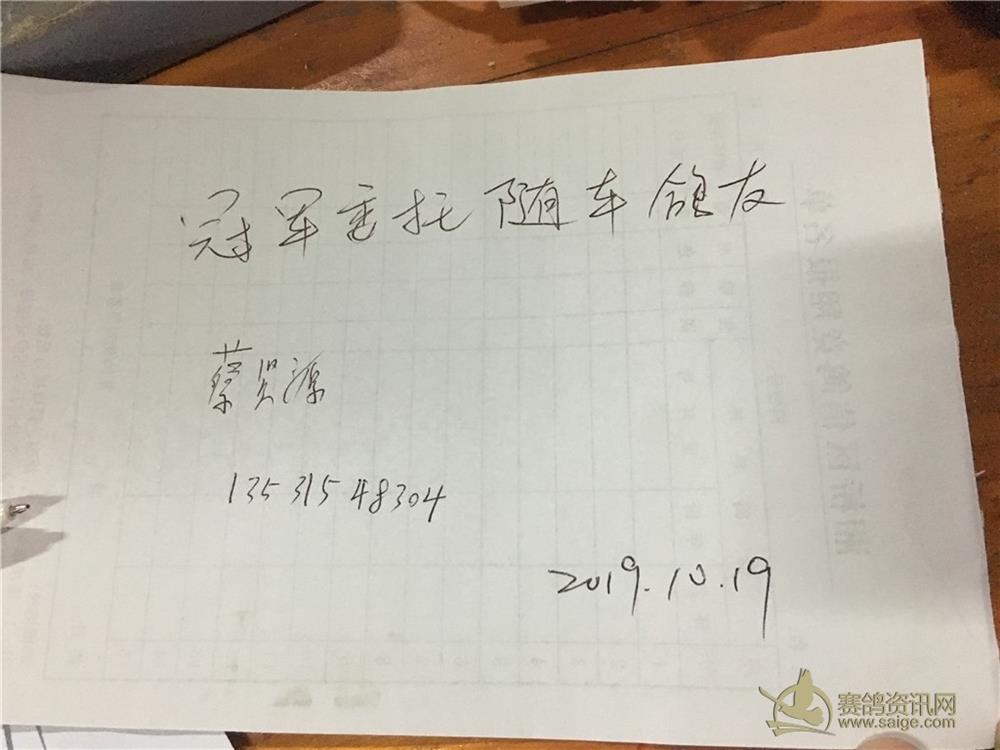 冠军委托随车鸽友
蔡贤源
13531548304
2019.10.19
赛鸽资讯网
www.saige.com